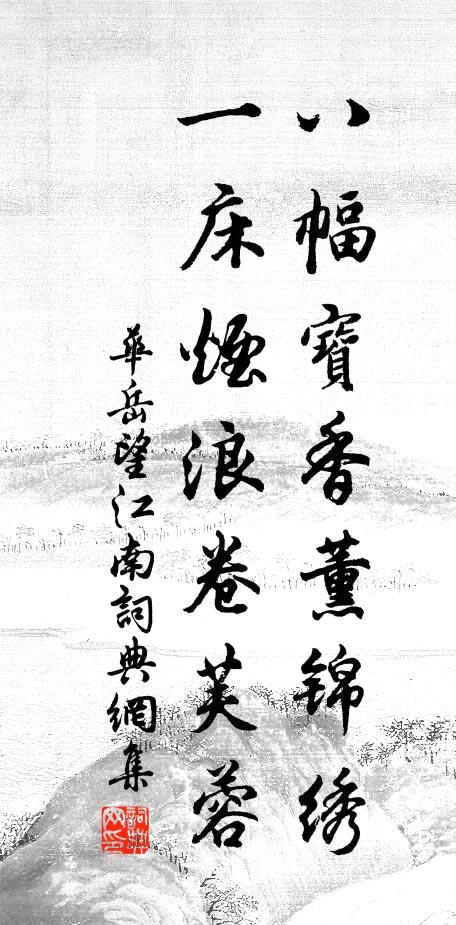 八幅寶香薰锦绣
一床煙浪卷芙蓉
華岳望江南詞典網集